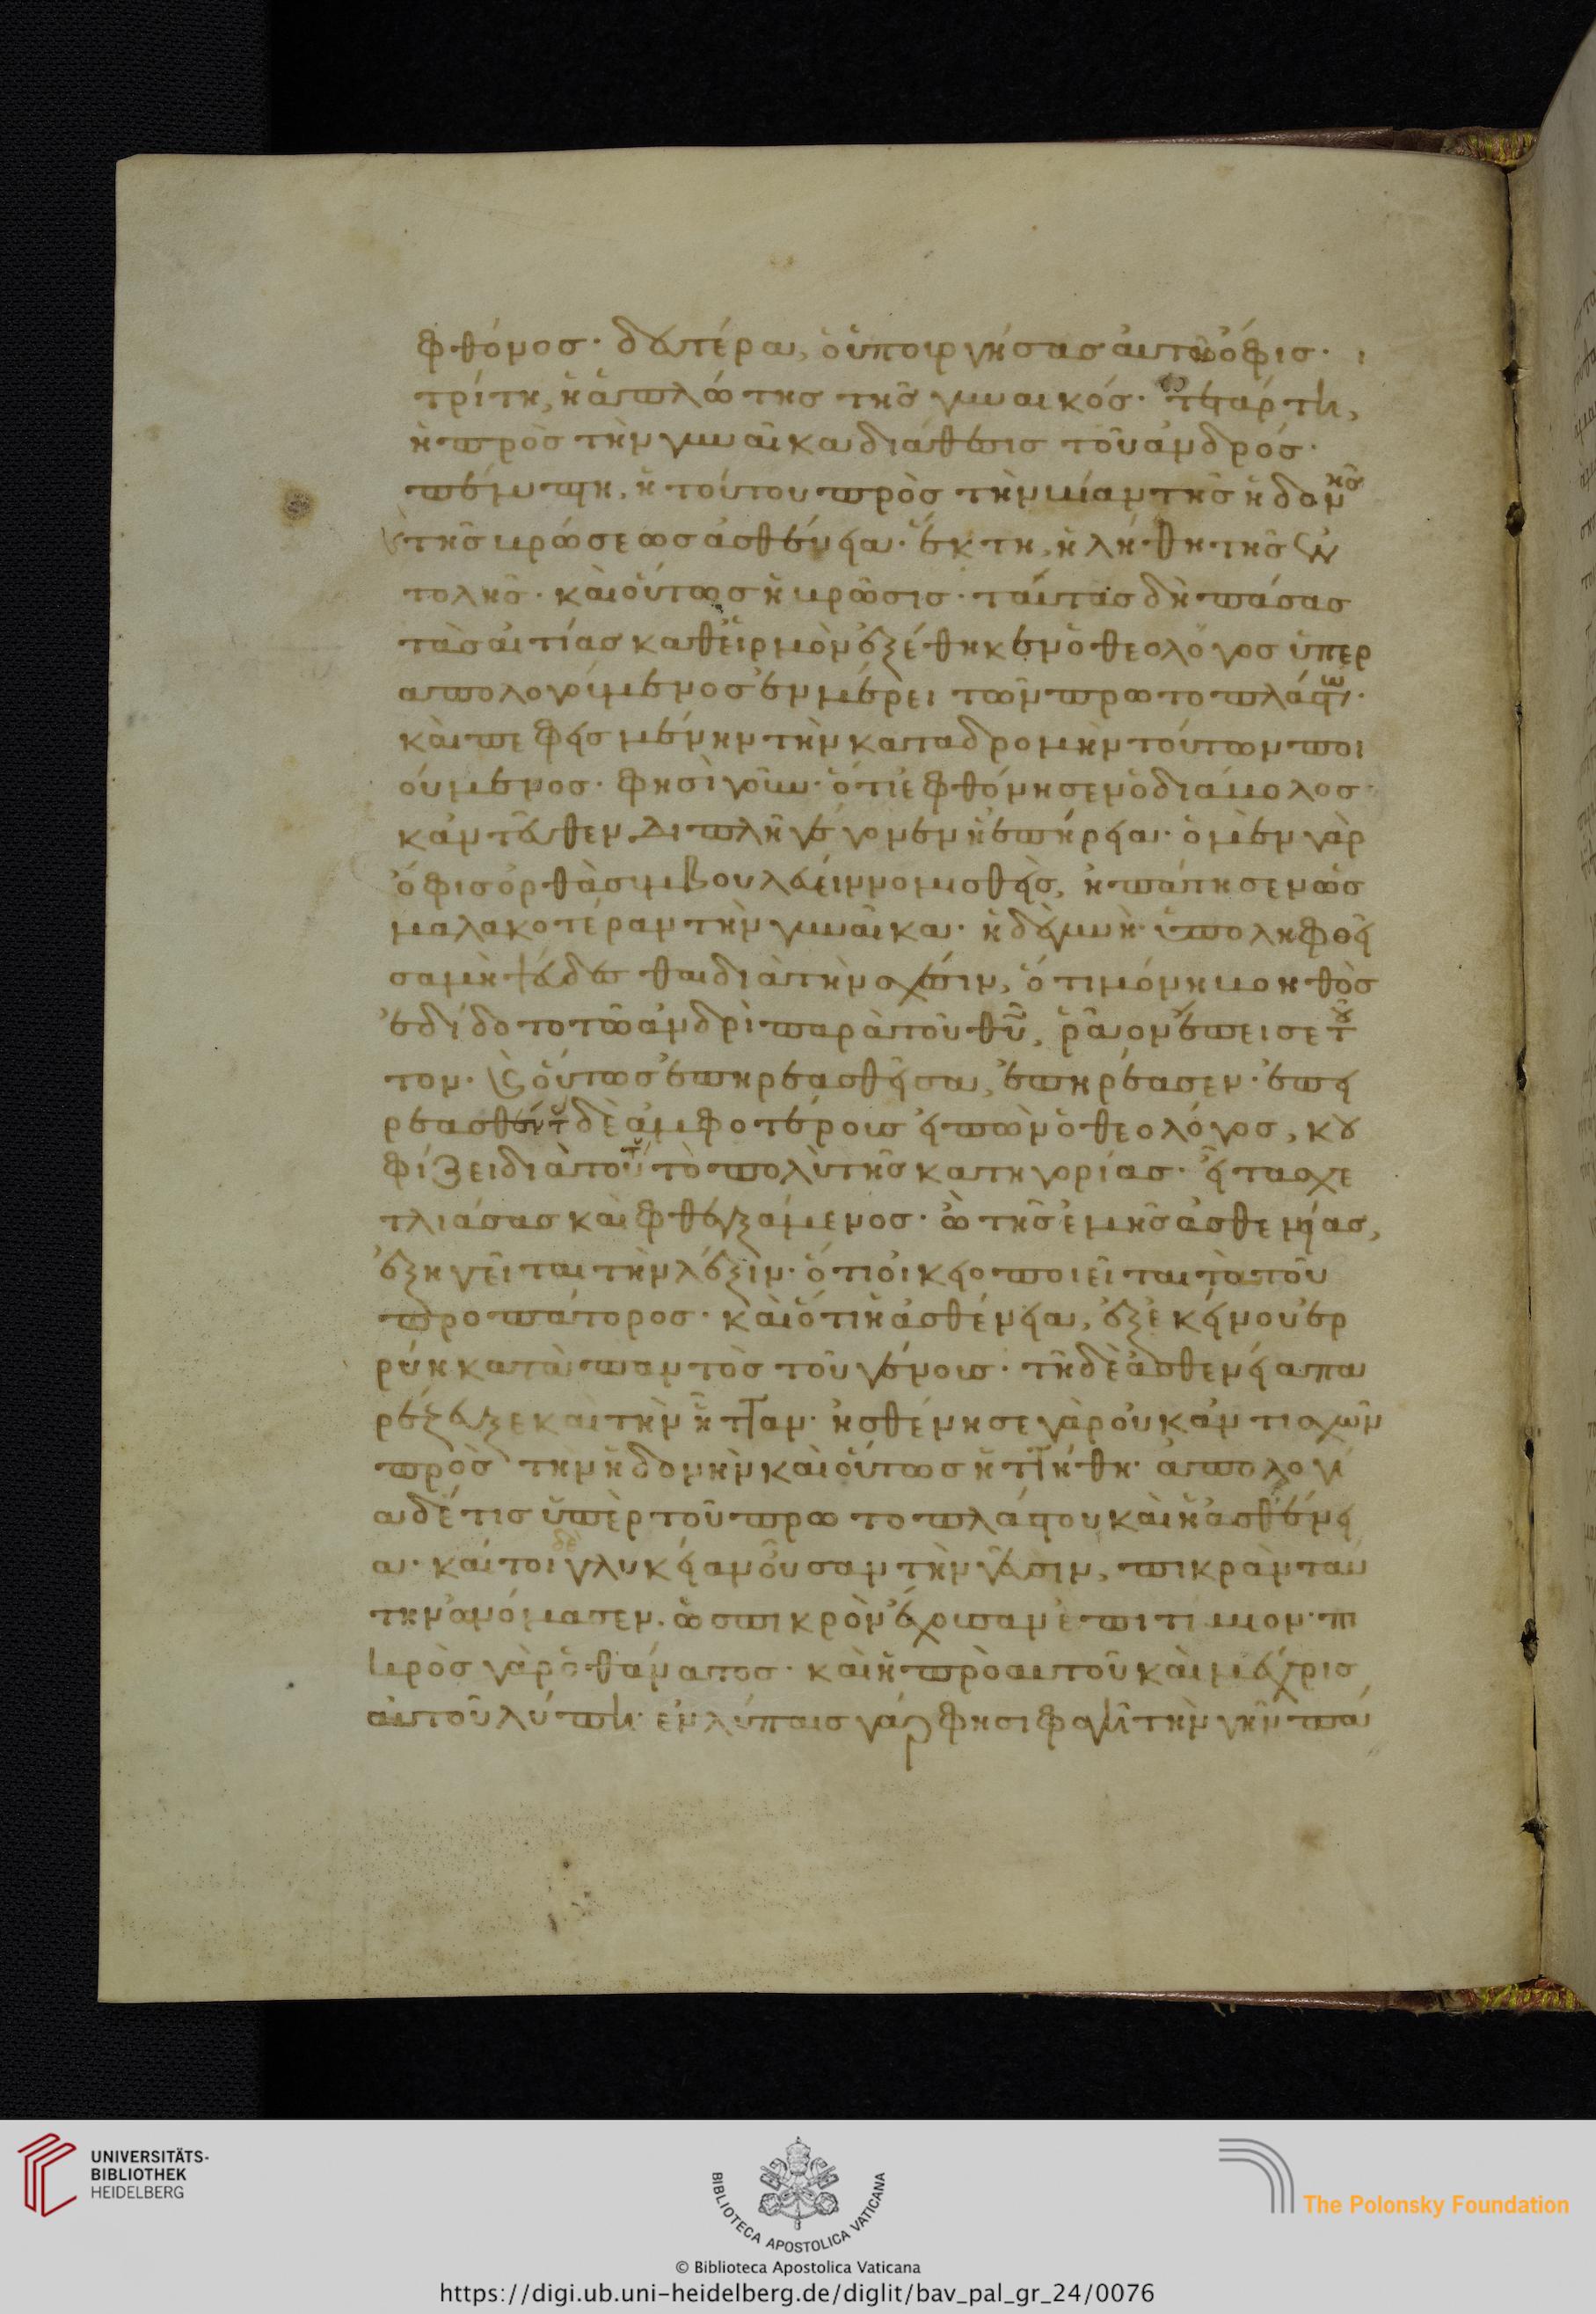 φθόνος· δευτέρα, ὁ ὑπουργήσας αυτῶ ὄφις·
τρίτη, ἡ ἁπλότης τῆς γυναικός· τετάρτη,
ἡ πρὸς τὴν γυναῖκα διάθεσις τοῦ ἀνδρός·
πέμπτη, ἡ τούτου πρὸς τὴν βίαν τῆς ἡδονῆς
τῆς βρώσεως ἀσθένεια· ἕκτη, ἡ λήθη τῆς ἐν
τολῆς· καὶ οὕτως ἡ βρῶσις· ταύτας δὴ πάσας
τὰς αἰτίας καθειρμὸν ἐξέθηκεν ὁ θεολόγος ὑπερ
απολογούμενος ἐν μέρει τῶν πρωτοπλάστων·
καὶ πεφεισμένην τὴν καταδρομὴν τούτων ποι
ούμενος· φησὶ γοῦν· ὅτι ἐφθόνησεν ὁ διάβολος·
κἀντεῦθεν διπλῆ γέγονεν ἡ ἐπήρεια· ὁ μὲν γὰρ
ὄφις ὀρθὰ συμβουλεύειν νομισθεὶς, ἠπάτησεν ὡς
μαλακοτέραν τὴν γυναῖκα· ἡ δὲ γυνὴ ὑποληφθεῖ
σα μὴ ψεύδεσθαι διὰ τὴν σχέσιν, ὅτι μόνη βοηθὸς
ἐδίδοτο τῶ ἀνδρὶ παρὰ τοῦ θυ, ρᾶον ἔπεισε τοῦ
τον· καὶ οὕτως ἐπηρεασθεῖσα, ἐπηρέασεν· ἐπη
ρεασθέντας δὲ ἀμφοτέρους εἰπὼν ὁ θεολόγος, κου
φίζει διὰ τοῦτο τὸ πολὺ τῆς κατηγορίας· εἶτα σχε
τλιάσας καὶ φθεγξάμενος· ὢ τῆς ἐμῆς ἀσθενείας,
ἐξηγεῖται τὴν λέξιν· ὅτι οἰκειοποιεῖται τὰ τοῦ
προπάτορος· καὶ ὅτι ἡ ἀσθένεια, ἐξ ἐκείνου ἐρ
ρύη κατὰ παντὸς τοῦ γένους· τῆ δὲ ἀσθενεία πα
ρέζευξε καὶ τὴν ἧτταν· ἠσθένησε γὰρ οὐκ ἀντισχὼν
πρὸς τὴν ἡδονὴν καὶ οὕτως ἡττήθη· ἀπολογί
α δέ τις ὑπὲρ τοῦ πρωτοπλάστου καὶ ἡ ἀσθένει
α· καίτοι δὲ γλυκεῖαν οὖσαν τὴν γεῦσιν, πικρὰν ταύ
την ὠνόμασεν· ὡς πικρὸν ἔχουσαν ἐπιτίμιον· πι
κρὸς γὰρ ὁ θάνατος· καὶ ἡ πρὸ αυτοῦ καὶ μέχρις
αὐτοῦ λύπη· ἐν λύπαις γάρ φησι φαγῆ τὴν γῆν πά
UNIVERSITÄTS-
BIBLIOTHEK
HEIDELBERG
BIBLIOTECA APOSTOLICA VATICANA
The Polonsky Foundation
© Biblioteca Apostolica Vaticana
https://digi.ub.uni-heidelberg.de/diglit/bav_pal_gr_24/0076